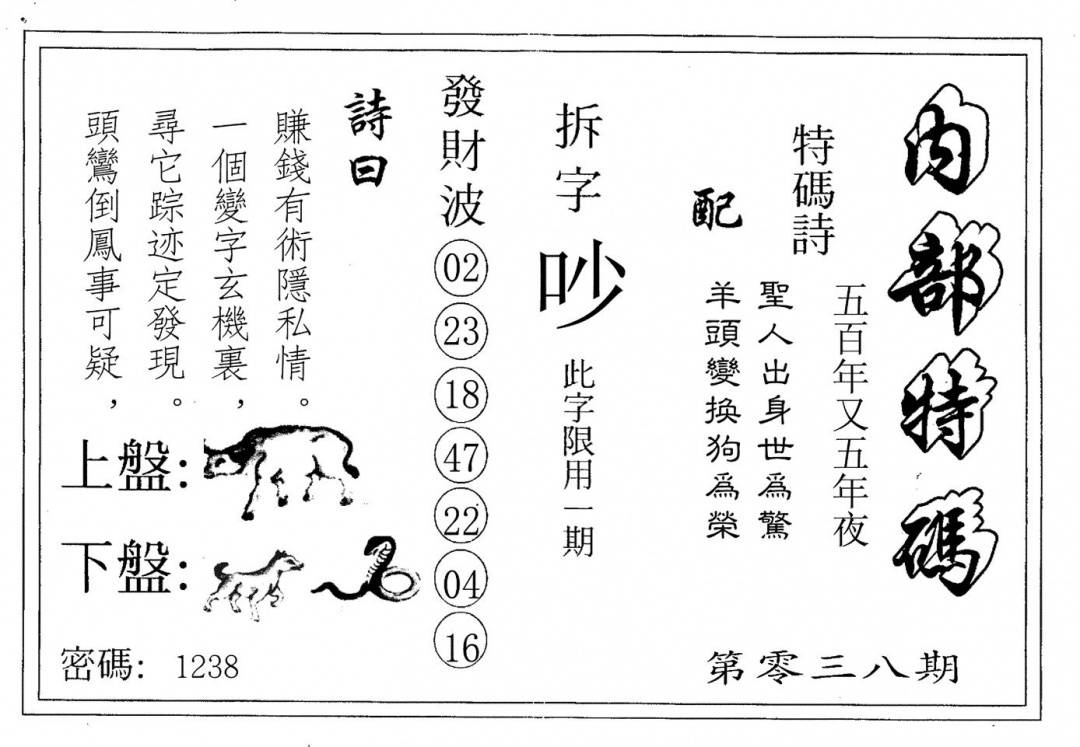 内部特碼
第零三八期
特碼詩
五百年又五年夜
配
聖人出身世爲驚
羊頭變换狗爲榮
拆字
吵
此字限用一期
發財波
02
23
18
47
22
04
16
詩曰
賺錢有術隱私情。
一個變字玄機裏，
尋它踪迹定發現。
頭鸞倒鳳事可疑，
上盤：
下盤：
密碼：1238